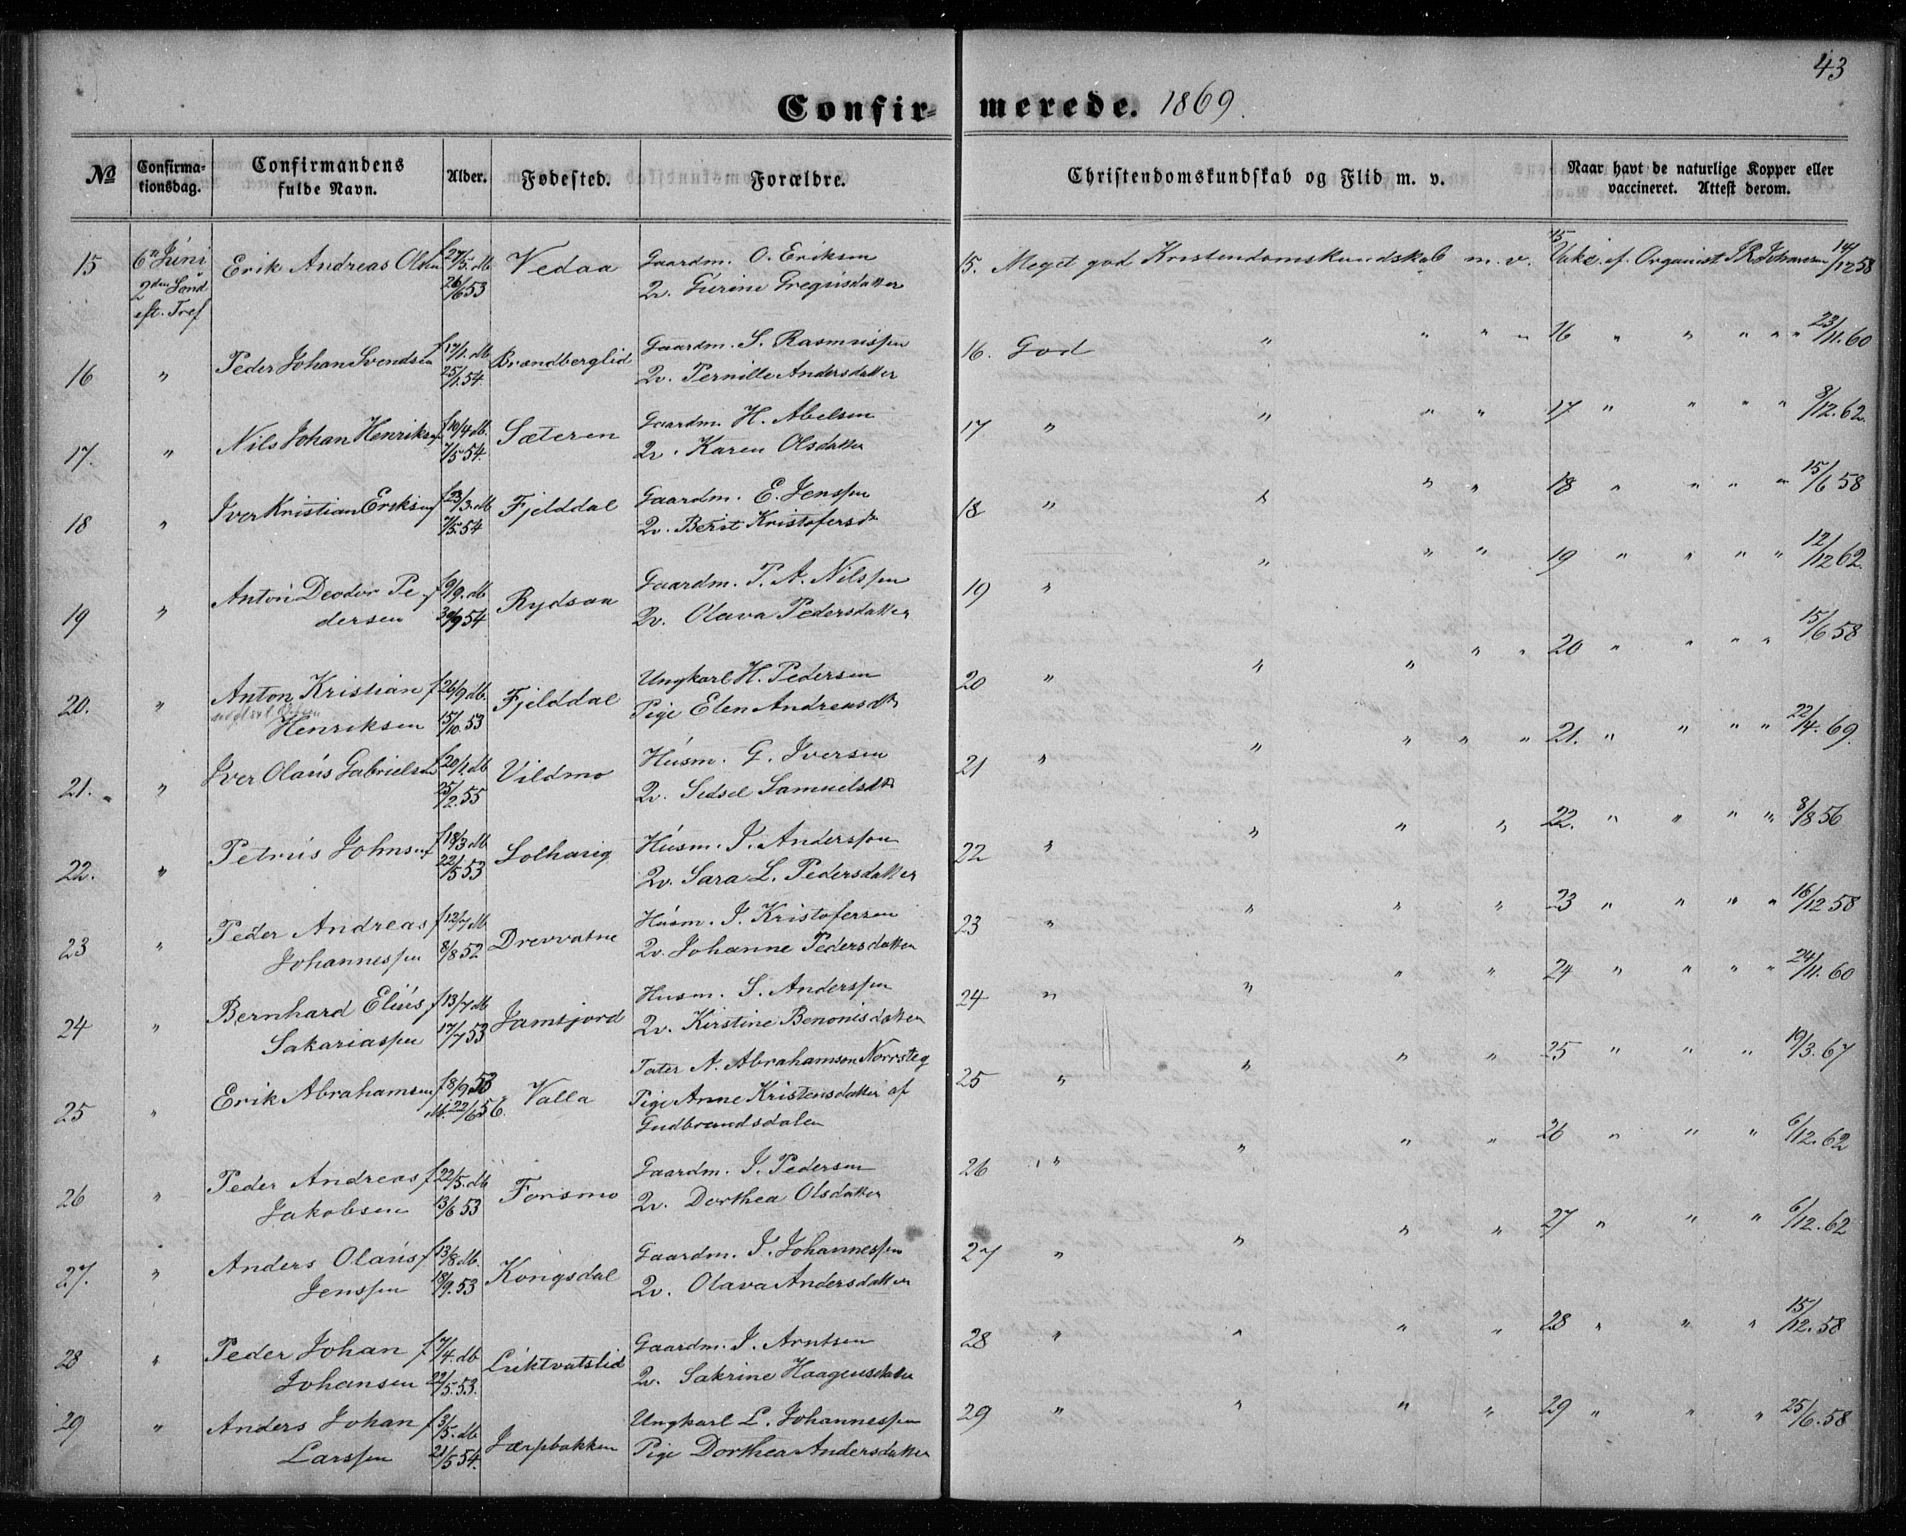 43
Confirmerede. 1869.
№ Confirmationsdag. Confirmandens fulde Navn. Alder. Fødested. Forældre. Christendomskundskab og Flid m. v. Naar havt de naturlige Kopper eller vaccineret. Attest derom.
15 6te Juni Erik Andreas Olsen f 27/5. db Vedaa Gaardm. O. Eriksen 15. Meget god Kristendomskundskab m. v. 15 Vakc. af Organist J R Johansen 14/12 58
2den Sönd 26/6 53 Qv. Gurine Gregusdatter
eft. Tref
16 " Peder Johan Svendsen f 17/1. db Brændberglid Gaardm. S. Rasmussen 16. God " " " " 16 " " " " " 23/11. 60
25/1. 54 Qv. Pernille Andersdatter
17. " Nils Johan Henriksen f 10/4 db. Sæteren Gaardm. H. Abelsen 17 " " " " 17 " " " " 8/12. 62.
7/5 54. Qv. Karen Olsdatter
18 " Iver Kristian Eriksen f 23/3. db Fjelddal Gaardm. E. Jenssen 18 " " " " 18 " " " " 15/6 58
7/5. 54 Qv. Berit Kristofersdtr
19 " Anton Deodor Pe- f 9/9. db Rydsaa Gaardm. P. A. Nilssen 19 " " " " 19 " " " " 12/12 62.
dersen 30/9 54 Qv. Olava Pedersdatter
20. " Anton Kristian f 26/9 db. Fjelddal Ungkarl H. Pedersen 20 " " " " " 20 " " " " 15/6 58
Henriksen 15/10. 53 Pige Elen Andreasdtr
21. " Iver Olaus Gabrielsen f 20/1. db Vildmo Husm. G. Iversen 21 " " " " " 21. " " " " 22/4. 69.
25/2. 55 Qv. Sedsel Samuelsdtr
22. " Petrus Johnsen f 18/3 db Solhaug Husm. J. Anderssen 22 " " " " 22. " " " " 8/8 56
22/5 53 Qv. Sara L. Pedersdatter
23 " Peder Andreas f 12/7 db Drevvatne Husm. J. Kristofersen 23 " " " " 23 " " " " 16/12 58
Johannessen 8/8 52 Qv. Johanne Pedersdatter
24 " Bernhard Elius f 13/7 db Jamtjord Husm. S. Anderssen 24 " " " " 24 " " " " 24/11. 60
Sakariassen 17/7 53 Qv. Kirstine Benonisdatter
25 " Erik Abrahamsen f 8/9 53 Valla Tater A. Abrahamson Norrsteg 25 " " " " 25 " " " 19/3. 67
db. 22/6 56. Pige Anne Kristensdatter af
Gudbrandsdalen
26 " Peder Andreas f 22/5. db Forsmo Gaardm. J. Pedersen 26 " " " " 26 " " " 6/12. 62
Jakobsen 13/6 53 Qv. Dorthea Olsdatter
27. " Anders Olaus f 13/8 db. Kongsdal Gaardm. J. Johannessen 27 " " " " 27 " " " 6/12. 62
Jenssen 18/9. 53 Qv. Olava Andersdatter
28 " Peder Johan f 7/4. db Luktvatslid Gaardm. J. Arntsen 28 " " " " 28 " " " 15/12. 58
Johansen 22/5. 53. Qv. Sakrine Haagensdatter
29 " Anders Johan f 3/5. db Jærpbakken Ungkarl L. Johannessen 29 " " " " 29 " " " 25/6. 58
Larssen 21/5 54. Pige Dorthea Andersdatter